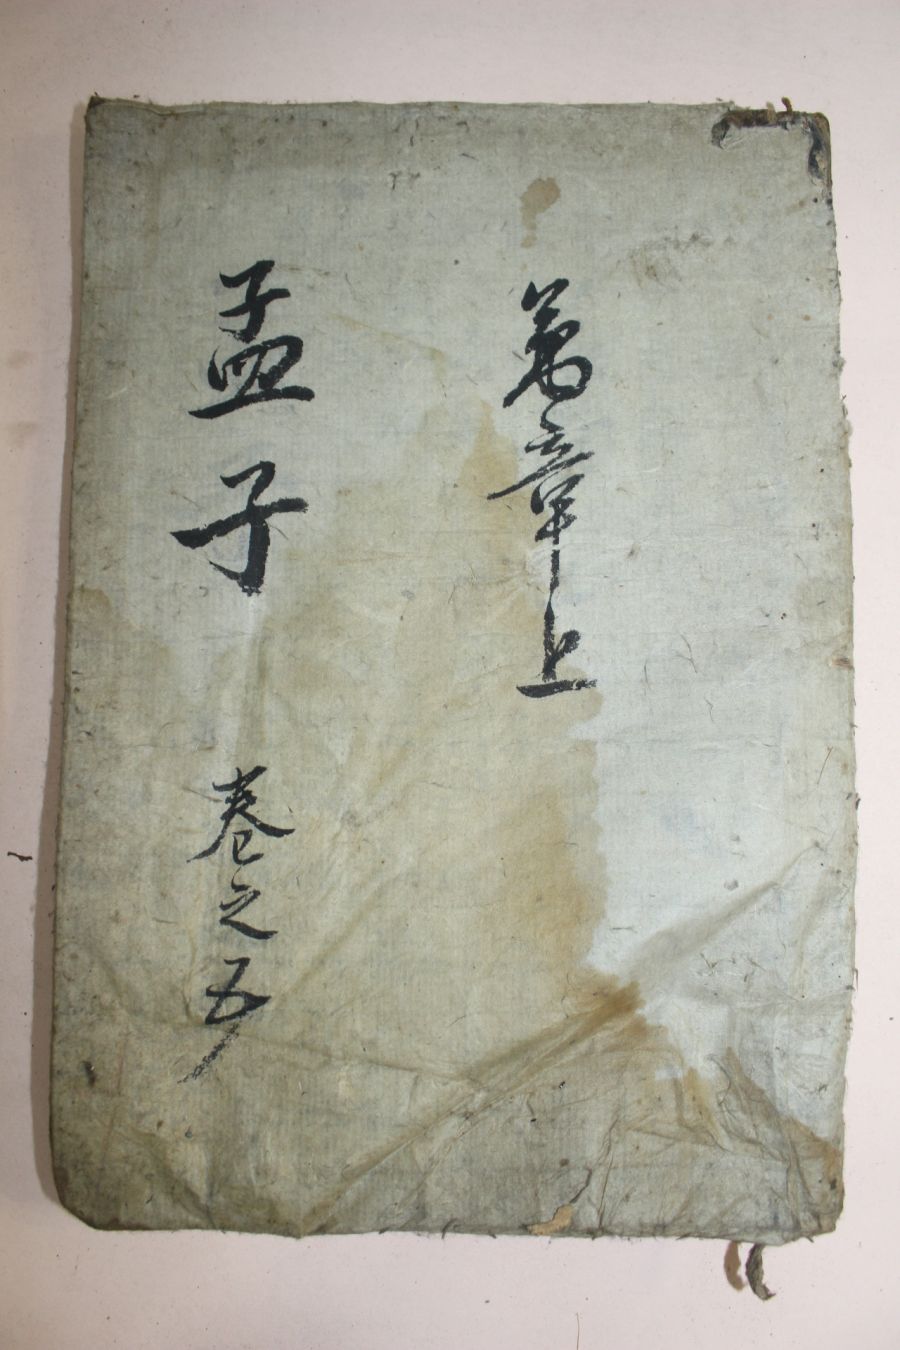 萬章上
孟子 卷之五